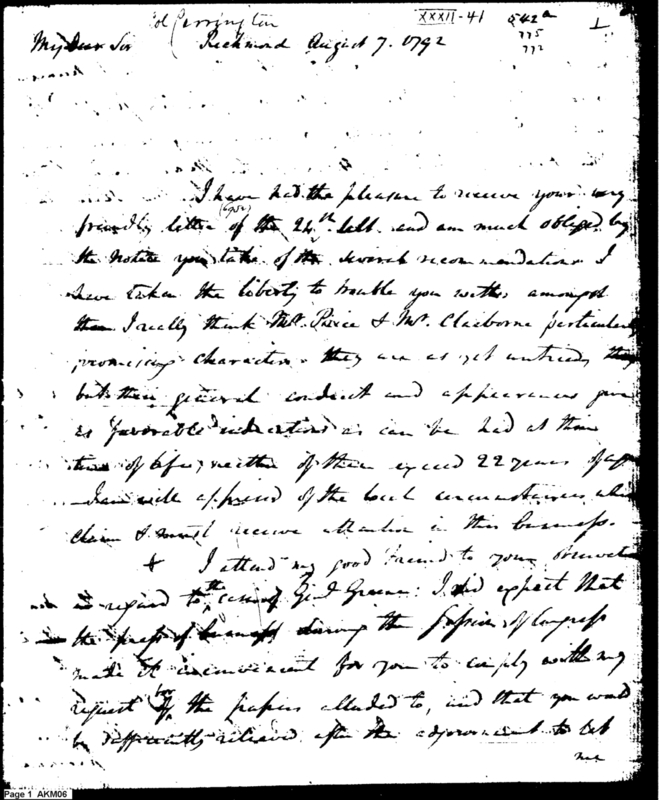 Col Carrington
XXXII-41
542a
775
772
1
My Dear Sir
Richmond August 7. 1792
I have had the pleasure to receive your very
friendly letter of the 24th Ult. and am much obliged by
the notice you take of the several recommendations I
have taken the liberty to trouble you with, amongst
them I really think Mr. Pierce & Mr. Claiborne particularly
promising characters. they are as yet untried,
but their general conduct and appearances give
as favorable indications as can be had at their
time of life, neither of them exceed 22 years of age
I am well apprised of the local circumstances which
claim & must receive attention in this business.
+ I attend my good Friend to your
in regard to the case of Genl Greene: I did expect that
the press of business during the Session of Congress
made it inconvenient for you to comply with my
request for the papers alluded to, and that you would
be sufficiently relieved after the adjournment to let
me
Page 1 AKM06